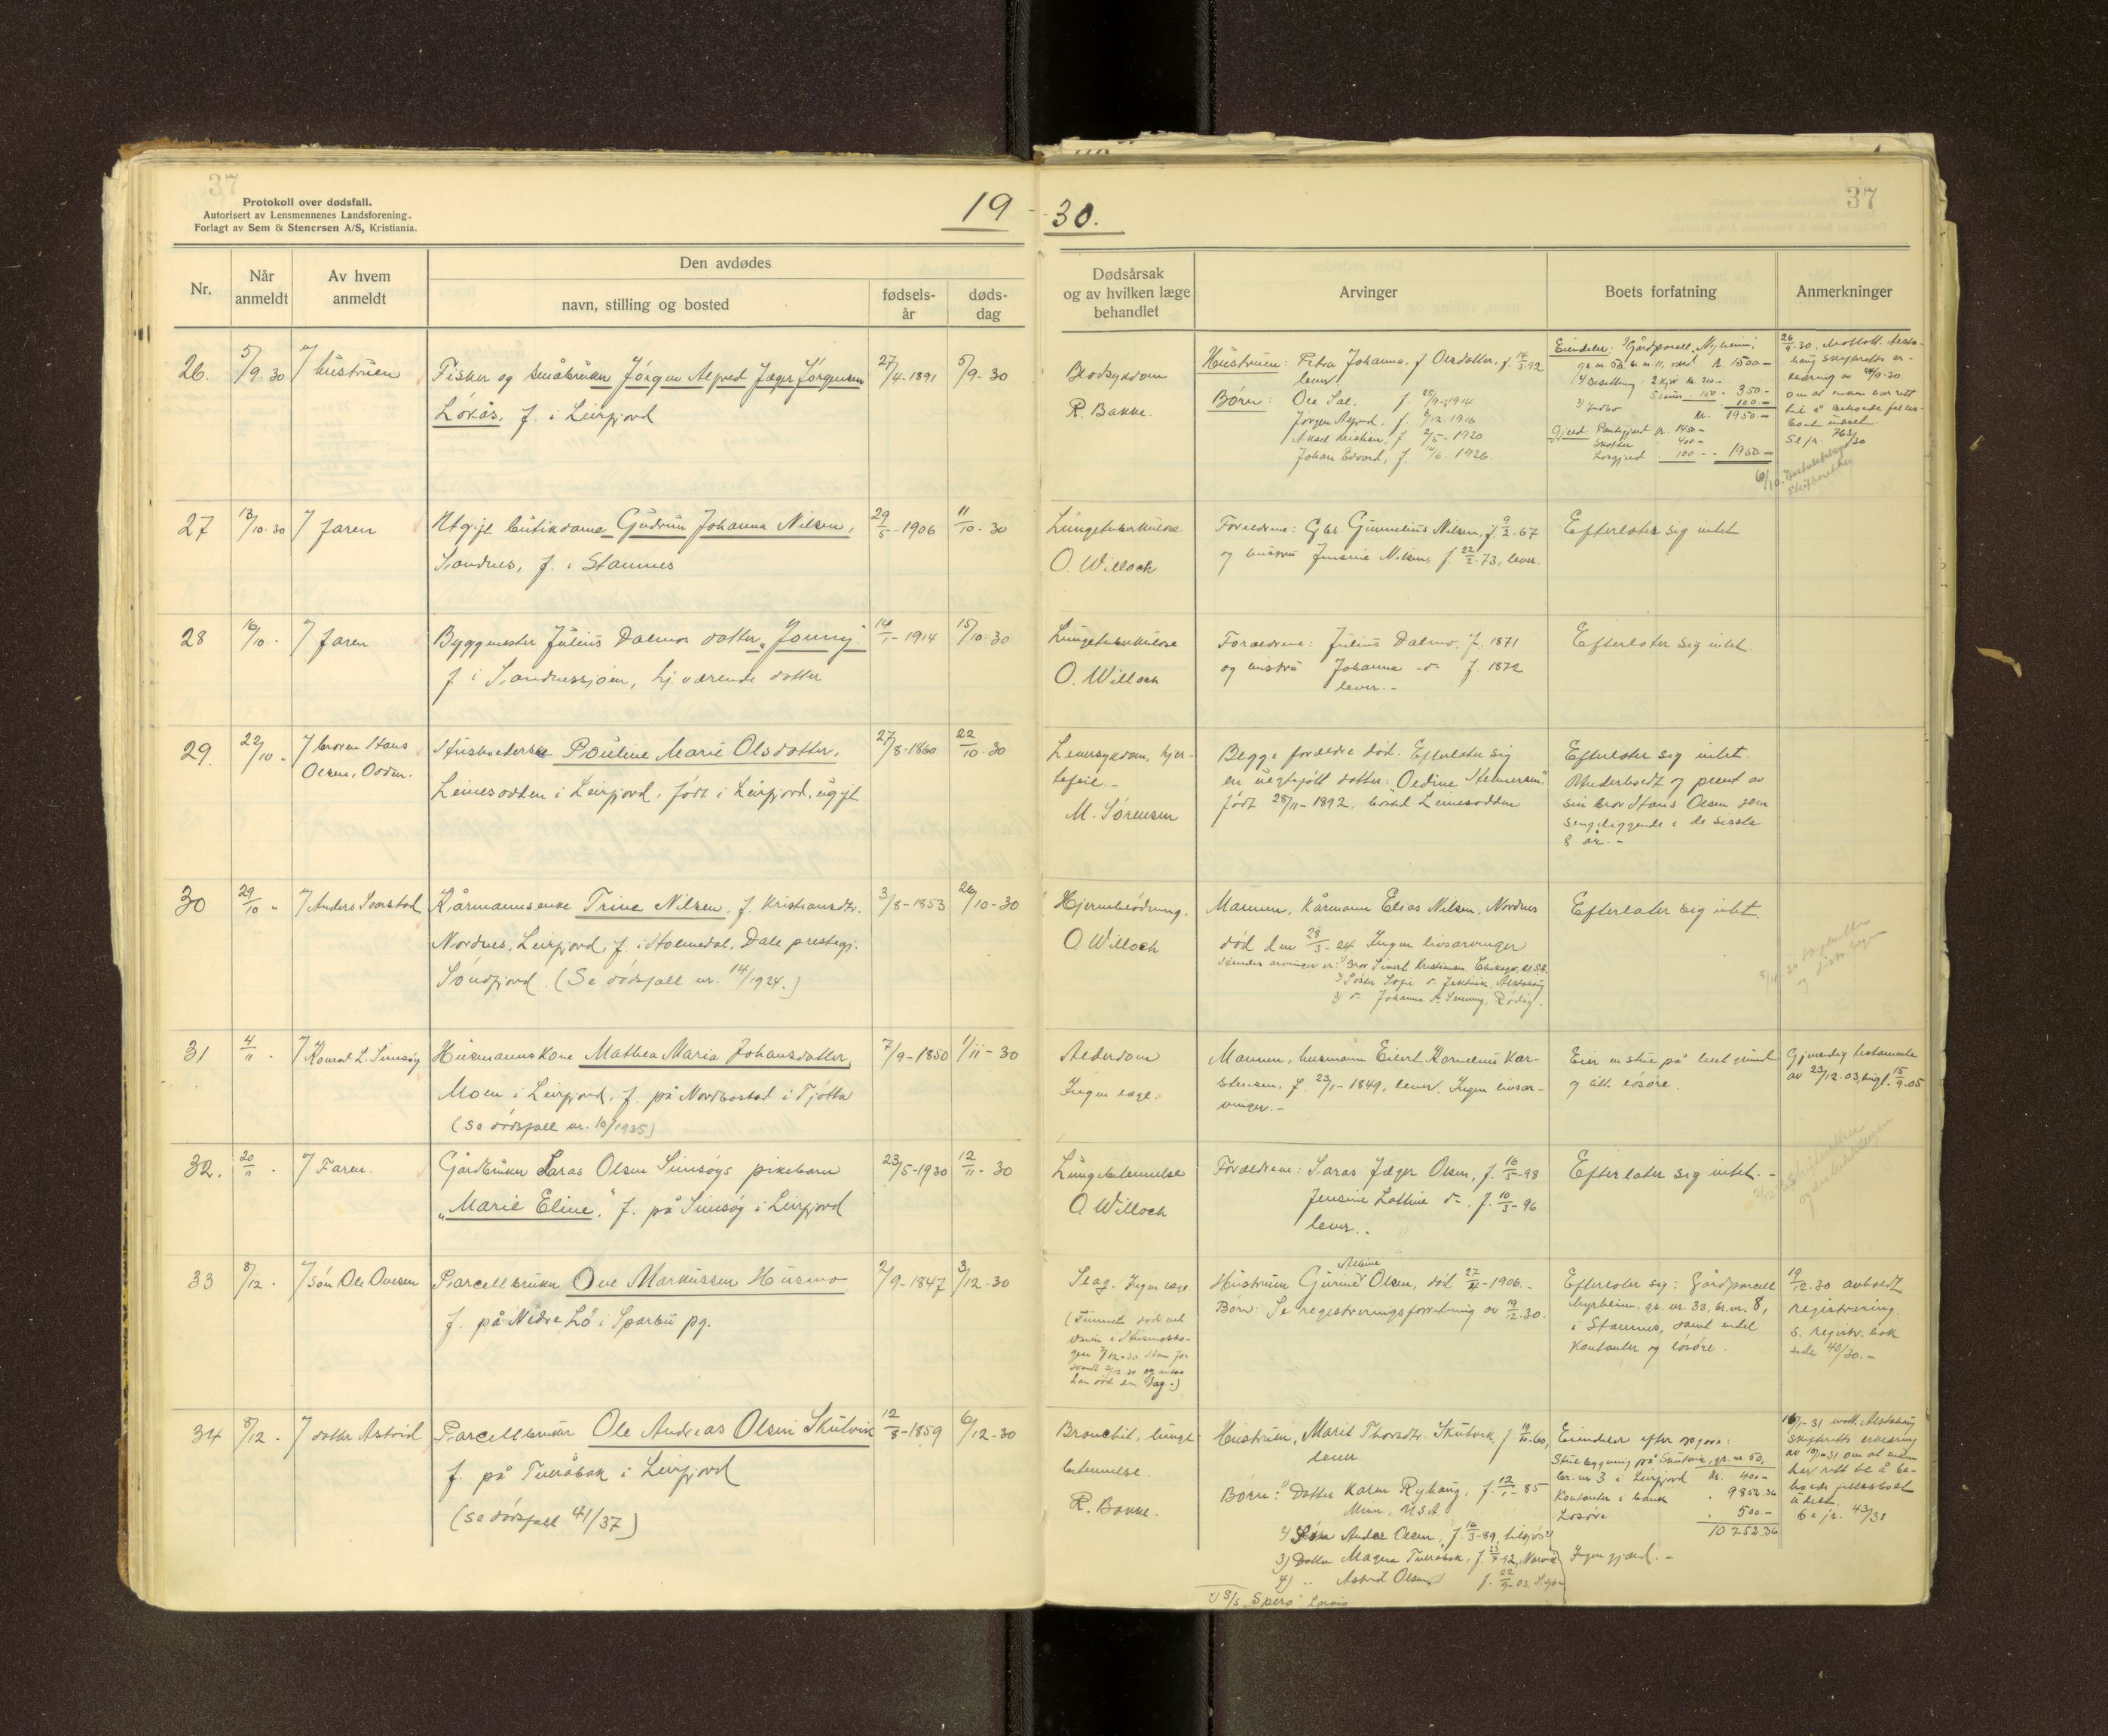 37
Protokoll over dødsfall.
Autorisert av Lensmennenes Landsforening.
Forlagt av Sem & Stenersen A/S, Kristiania.
19
30.
37
Nr.
Når anmeldt
Av hvem anmeldt
Den avdødes
navn, stilling og bosted
fødsels-år
døds-dag
Dødsårsak og av hvilken læge behandlet
Arvinger
Boets forfatning
Anmerkninger
26.
5/9-30
hustruen
Fisker og småbruker Jörgen Alfred Jæger Jörgensen
Lökås, f. i Leirfjord
27/4-1891
5/9-30
Blodsykdom
R. Bakke.
Hustruen: Petra Johanna, f. Olsdatter, f. 14/3-92
lever
Börn: Ole Sal. f. 25/9-1914
Jörgen Alfred, f. 2/12 1916
Aksel Kristian, f. 2/5-1920
Johan Edvard, f. 1926.
Eiendeler: 1) Gårdparsell
gr. nr. 56, br. nr. 11, verd kr. 1500.-
2) Besetning: 2 kjör kr. 200.-
350.-
3) Indbo 100.-
kr. 1950.-
Gjeld: Pantegjeld kr. 1450.-
Skatter 400.-
Lösgjeld 100.- 1950.-
26/9-30. Mottatt Alsta-
haug skifteretts er-
klæring av 24/9-30
om at enken har rett
til å beholde felles-
boet uskiftet.
Se jr. 763/30
27
13/10-30
Faren
Ugift butikdame Gudrun Johanna Nilsen,
Sandnes, f. i Stamnes
29/5-1906
11/10-30
Lungetuberkulose
O. Willoch
Foreldrene: Gbr Gunnelius Nilsen, f. 9/2-67
og hustru Jensine Nilsen, f. 22/2-73, lever.
Efterlater sig intet
28
16/10 -
Faren
Byggmester Julius Dalmos datter „Jonny"
f. i Sandnessjöen, hj. værende datter
14/1-1914
15/10-30
Lungetuberkulose
O. Willoch
Foreldrene: Julius Dalmo, f. 1871
og hustru Johanna -d- f. 1872
lever.-
Efterlater sig intet.
29.
22/10 -
broren Hans
Olsen, Odden.
Husholderske Pauline Marie Olsdatter,
Leinesodden i Leirfjord, født i Leirfjord, ugift
27/8-1860
22/10-30
Leversykdom, hjer-
tefeil.-
M. Sørensen
Begge foreldre död. Efterlater sig
en uegtefött datter: Oldine Steinersen,
født 28/11-1892, bosted Leinesodden
Efterlater sig intet.
Underholdt og pleiet av
sin bror Hans Olsen som
sengeliggende i de siste
8 år.-
30
29/10 "
Anders Svarstad
Kårmannsenke Trine Nilsen, f. Kristiansdtr.
Nordnes, Leirfjord, f. i Holmedal, Dale prestegj.
Söndfjord. (Se dödsfall nr. 14/1924.)
3/8-1853
26/10-30
Hjerneblödning.
O. Willoch
Mannen, Kårmann Elias Nilsen, Nordnes
død den 28/3-24. Ingen livsarvinger
Hendes arvinger er: 1) Bror Sivert Kristiansen, Chikago, U.S.A.
2) Söster Sofie d- Alstahaug
3) d- Johanna d-
Efterlater sig intet.
31
4/11 -
Konrad L. Simsøy
Husmannskone Mathea Maria Johansdatter,
Moen i Leirfjord, f. på Nordbostad i Tjötta
(Se dödsfall nr. 10/1935)
7/9-1850
1/11-30
Alderdom
Ingen læge.
Mannen, husmann Eilert Kornelius Kar-
stensen, f. 23/1-1849, lever. Ingen livsar-
vinger.-
Eier en stue på leiet grund
og litt lösöre.
Gjensidig testamente
av 23/12-03, tingl. 15/9-05
32.
20/11 -
Faren.
Gårdbruker Laras Olsen Simsöys pikebarn
„Marie Eline", f. på Simsøy i Leirfjord
23/5-1930
12/11-30
Lungebetennelse
O. Willoch
Foreldrene: Saras Jæger Olsen, f. 10/5-98
Jensine Lottine d- f. 10/3-96
lever.-
Efterlater sig intet.-
33
8/12 -
sön Ole Ovesen
Parcellbruker Ove Markussen Husmo
f. på Nedre Lö i Sparbu pg.
2/9-1847
3/12-30
Slag. Ingen læge.
(Funnet död ved
3/12-30 og antas
han död den dag.-)
Hustruen Gurine Olsen, död 27/4-1906.-
Albine
Börn: Se registreringsforretning av 19/12-30.
Efterlater sig: Gårdparcell
Myrheim, gr. nr. 33, br. nr. 8,
i Stamnes, samt endel
kontanter og lösöre.
19/12-30 avholdt
registrering.
S. registr. bok
side 40/30.-
34
8/12 -
datter Astrid
Parcellbruker Ole Andreas Olsen Skutvik
f. på Tveråbak i Leirfjord
(Se dödsfall 41/37)
12/8-1859
6/12-30
Bronchit, lunge-
betennelse.
R. Bakke.
Hustruen, Marit Thorsdtr. Skutvik, f. 60,
lever
Börn: 1) Datter Karen Ryhaug, f. 12/1-85
Minn, U.S.A.
2) Sön Ander Olsen, f. 16/3-89,
3) Datter Magna Tveråbak, f. 92, Narvik
4) " Astrid Olsen f. 22/9-03.
S/S „Spero" Larvik
Eiendeler efter opgave:
Stuebygning på Skutvik, gr. nr. 50,
br. nr 3 i Leirfjord kr. 400.-
Kontanter i bank 9852.36
Lösöre 500.-
10752.36
Ingen gjeld.-
16/1-31 mott. Alstahaug
skifteretts erklæring
av om at enken
har rett til å be-
holde fellesboet
uskiftet.
Se jr. 43/31